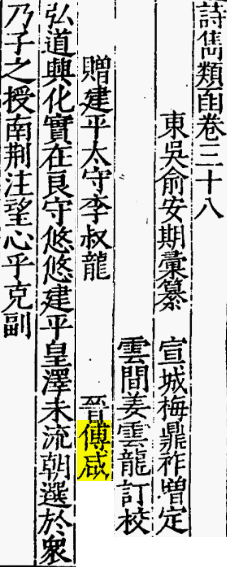 詩雋類函卷三十八
東吳俞安期彙纂　宣城梅鼎祚增定
雲間姜雲龍訂校
贈建平太守李叔龍　晉傅咸
弘道興化實在良守悠悠建平皇澤未流朝選於衆
乃子之授南荆注望心乎克副